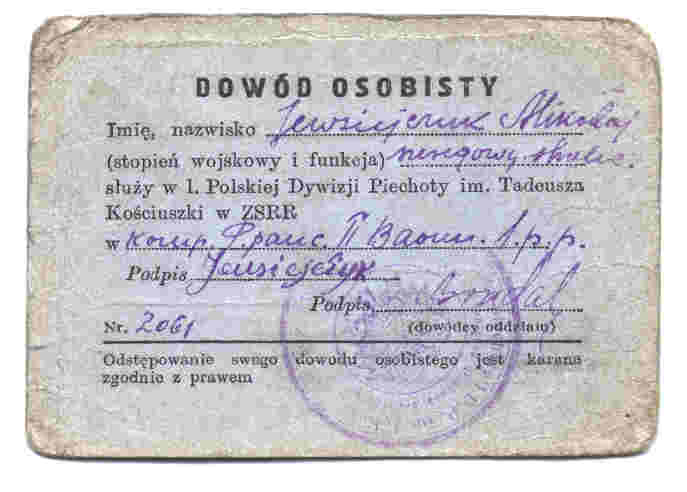 DOWÓD OSOBISTY
Imię, nazwisko Jewsiejczuk Mikołaj
(stopień wojskowy i funkcja) szeregowy strzelec.
służy w 1. Polskiej Dywizji Piechoty im. Tadeusza
Kościuszki w ZSRR
w komp. II Baonu. 1.p.p.
Podpis
Podpis
Nr. 2061 (dowódcy oddziału)
Odstępowanie swego dowodu osobistego jest karane
zgodnie z prawem